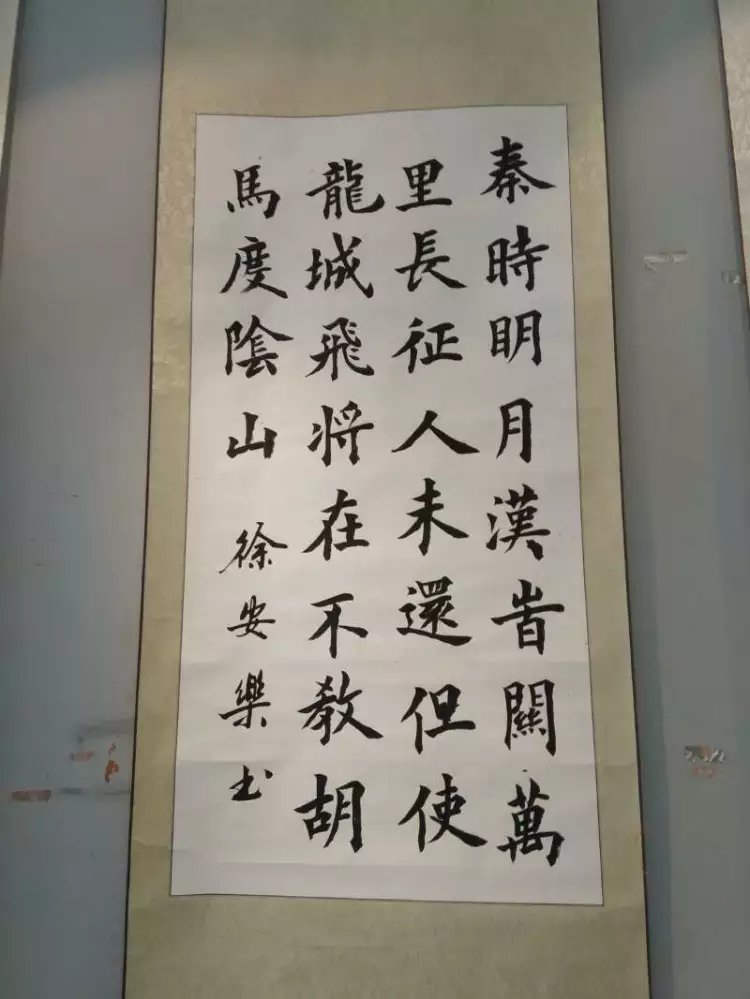 秦時明月漢旹關萬
里長征人未還但使
龍城飛将在不教胡
馬度陰山 徐安樂书